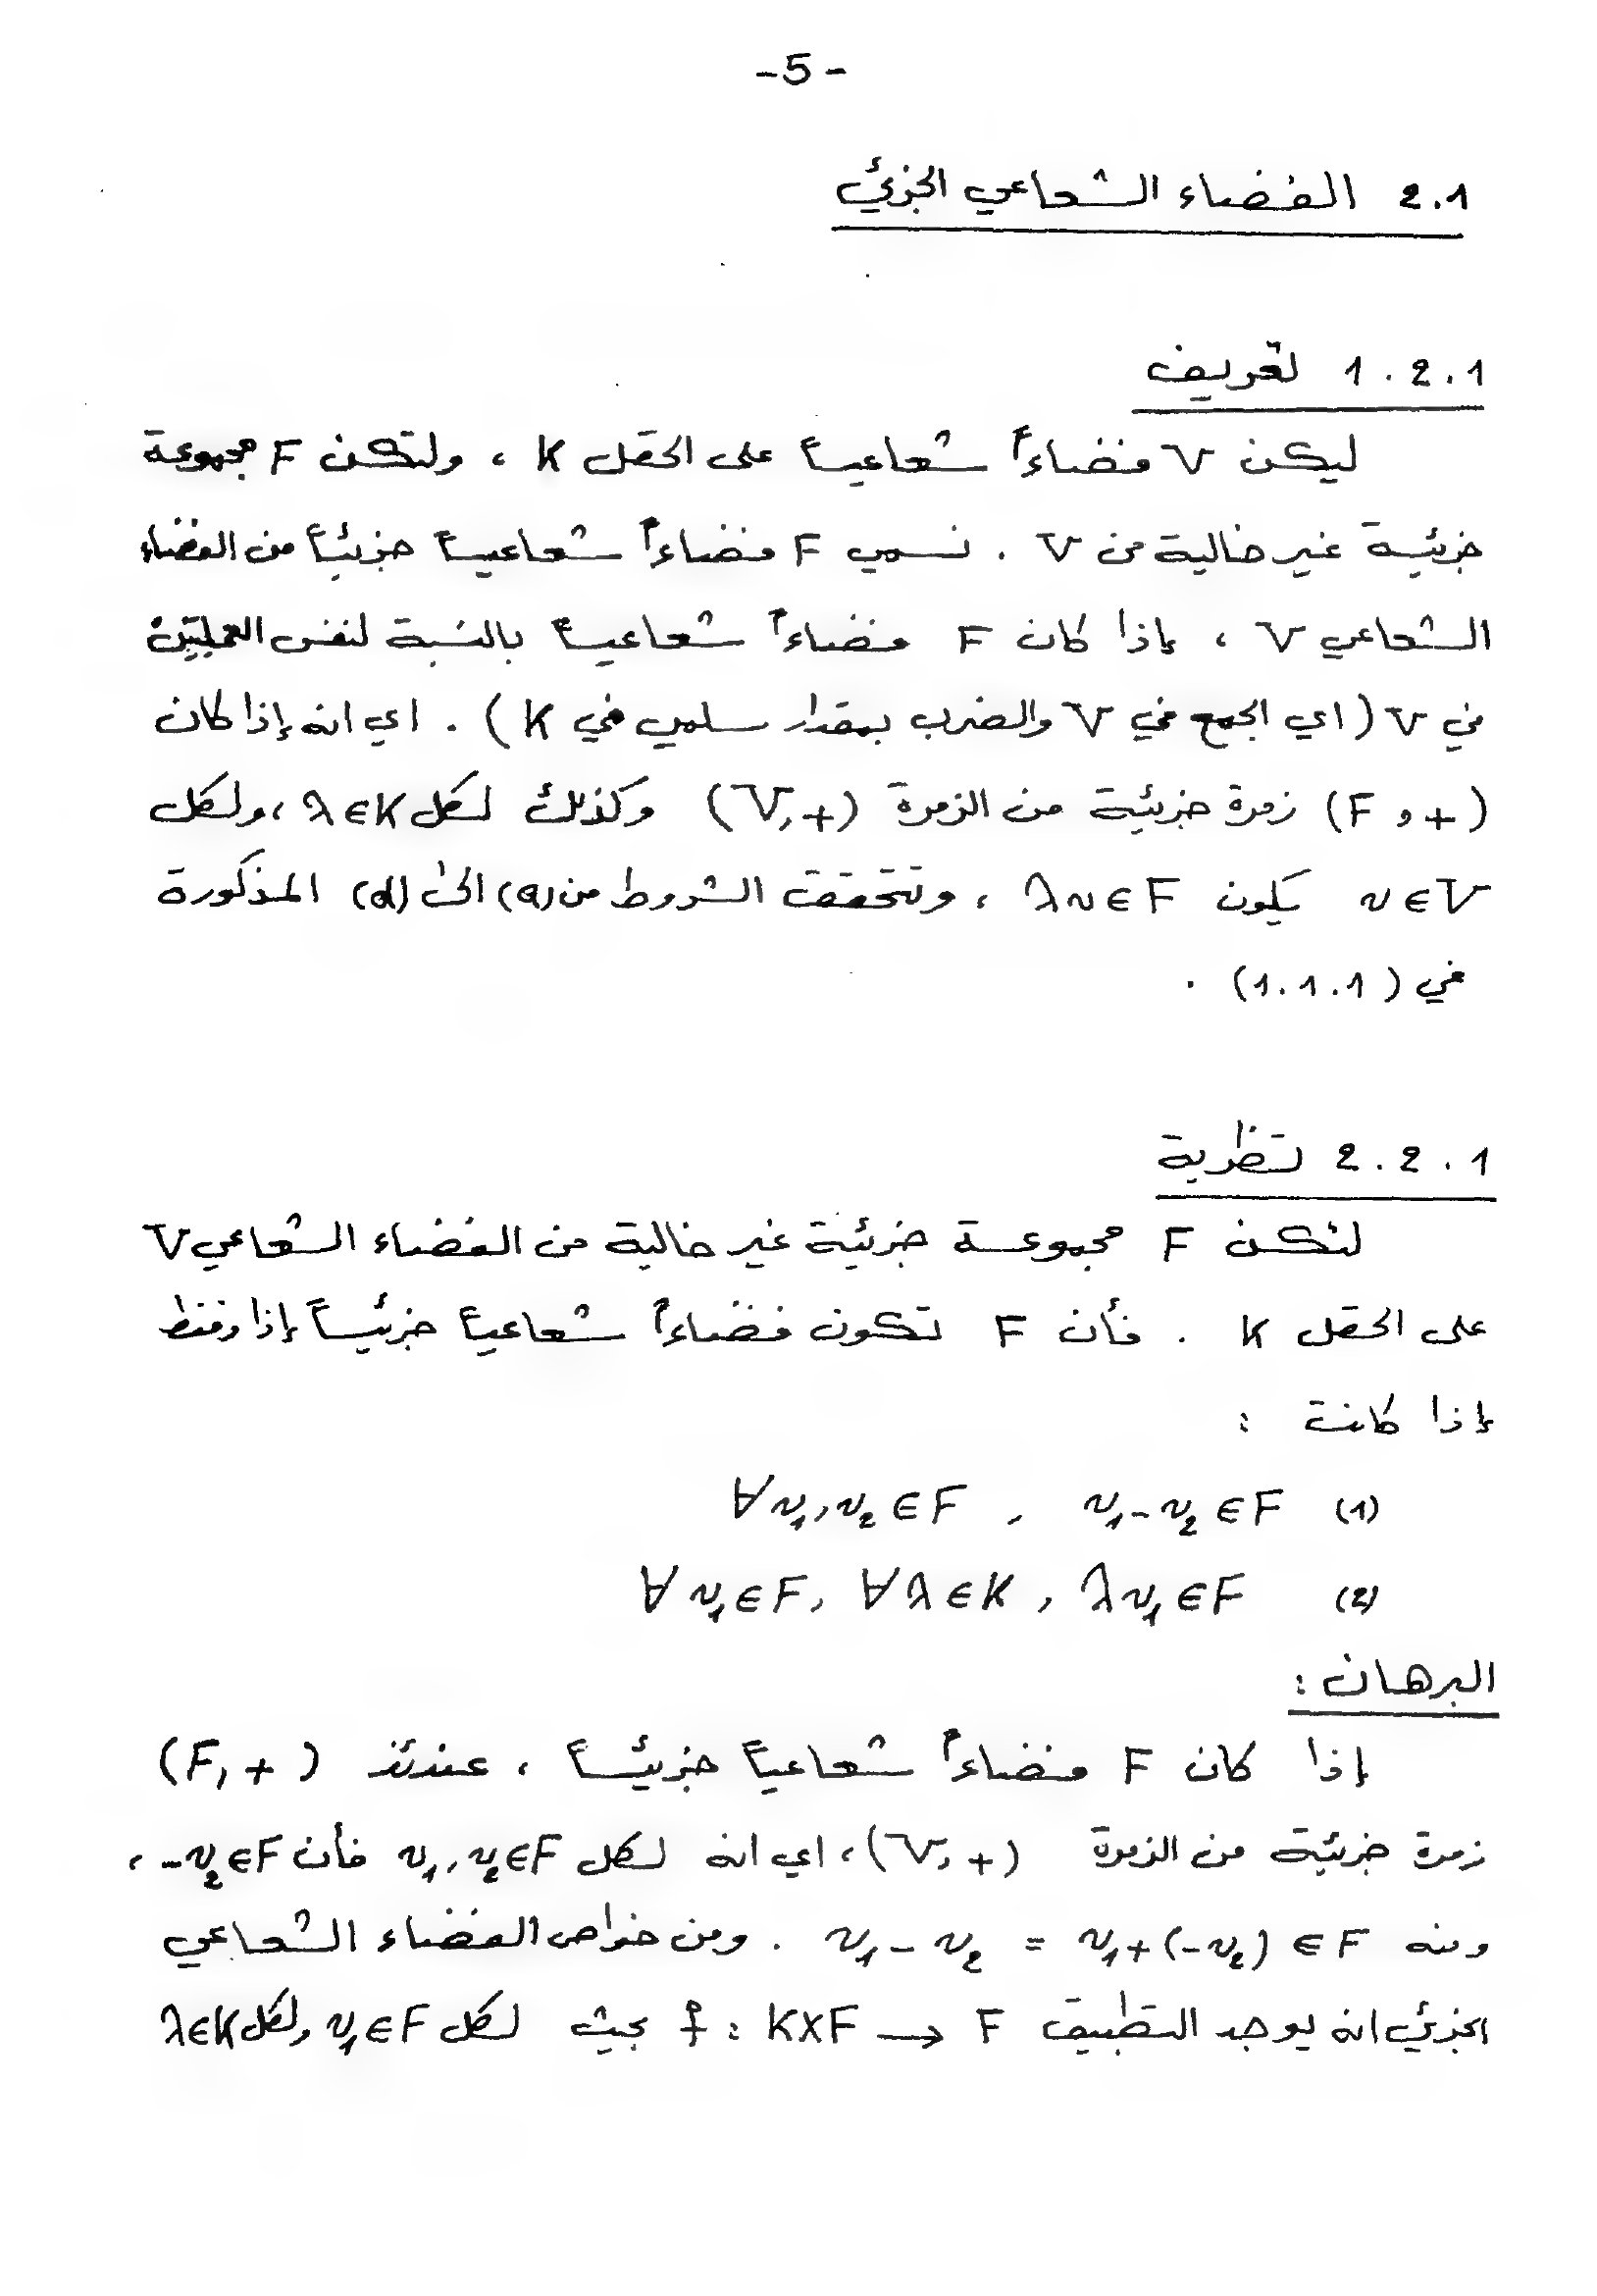 -5-
2.1 الفضاء الشعاعي الجزئي
1.2.1 تعريف
ليكن V فضاءاً شعاعياً على الحقل K ، ولتكن F مجموعة
جزئية غير خالية من V . نسمي F فضاءاً شعاعياً جزئياً من الفضاء
الشعاعي V ، إذا كان F فضاءاً شعاعياً بالنسبة لنفس العمليتين
في V (اي الجمع في V والضرب بمقدار سلمي في K) . اي انه إذا كان
(F,+) زمرة جزئية من الزمرة (V,+) وكذلك لكل λ∈K ، ولكل
v∈V يكون λv∈F ، وتتحقق الشروط من (a) الى (d) المذكورة
في (1.1.1) .
2.2.1 نظرية
لتكن F مجموعة جزئية غير خالية من الفضاء الشعاعي V
على الحقل K . فأن F تكون فضاءاً شعاعياً جزئياً إذا وفقط
إذا كانت :
(1) ∀v₁,v₂∈F , v₁-v₂∈F
(2) ∀v₁∈F, ∀λ∈K, λv₁∈F
البرهان :
إذا كان F فضاءاً شعاعياً جزئياً ، عندئذ (F,+)
زمرة جزئية من الزمرة (V,+) ، اي انه لكل v₁,v₂∈F فأن -v₂∈F ،
ومنه v₁-v₂ = v₁+(-v₂)∈F . ومن خواص الفضاء الشعاعي
الجزئي انه يوجد التطبيق f : K×F → F بحيث لكل v₁∈F ولكل λ∈K